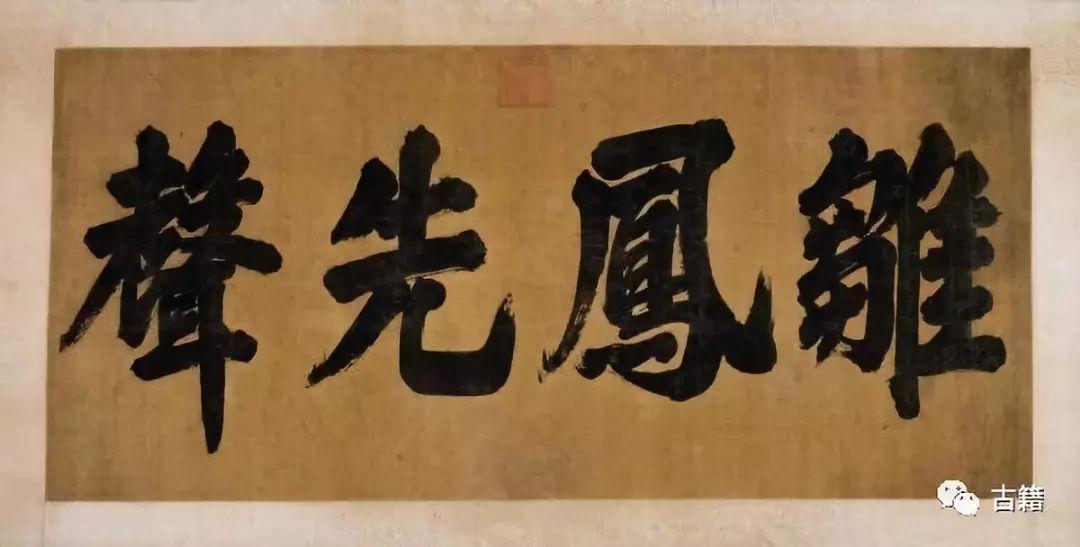 雛鳳先聲
古籍